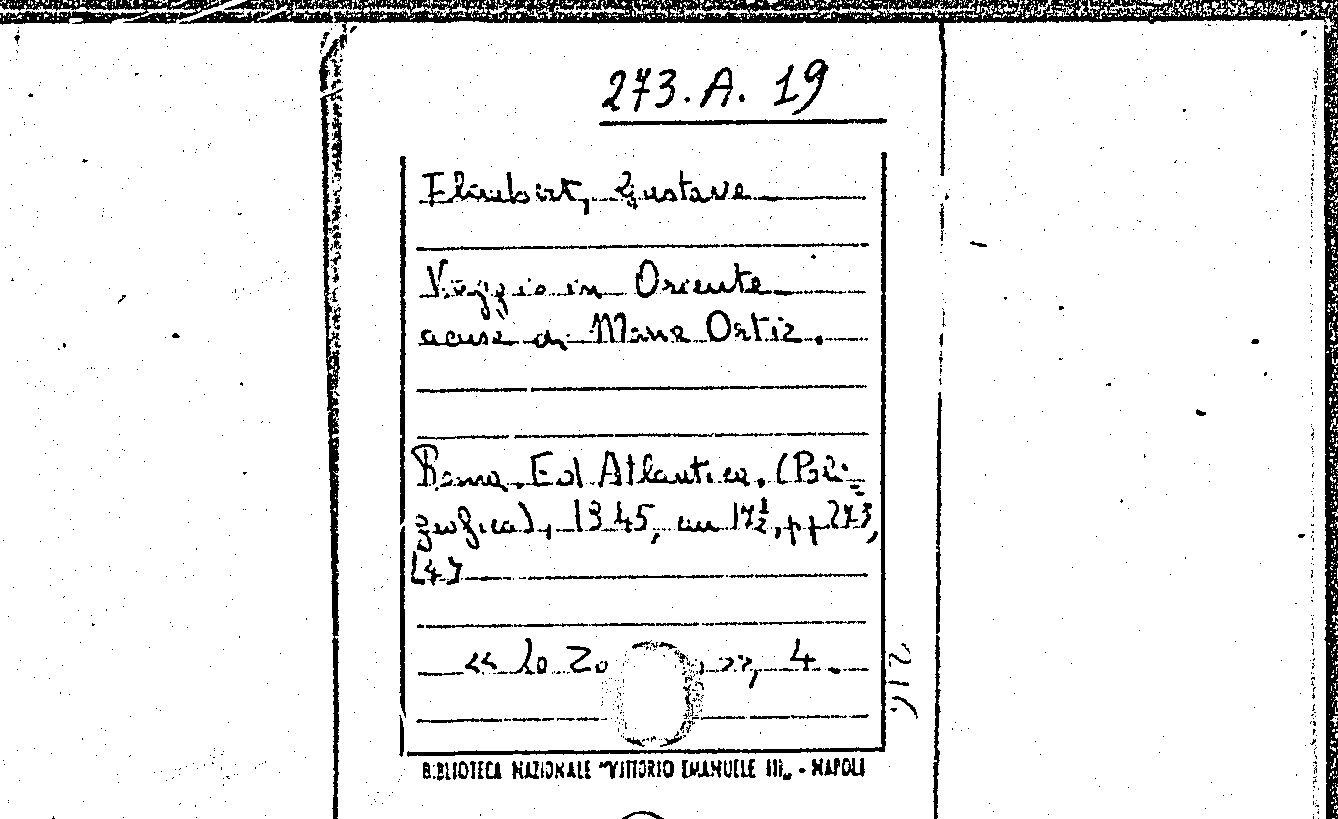 273.A.19
Flaubert, Gustave
Viaggio in Oriente
a cura di Maria Ortiz.
Roma. Ed Atlantica. (Poli-
grafica), 1945, in 17½, pp 273,
[4]
«Lo Zo », 4.
216
BIBLIOTECA NAZIONALE "VITTORIO EMANUELE III„ - NAPOLI